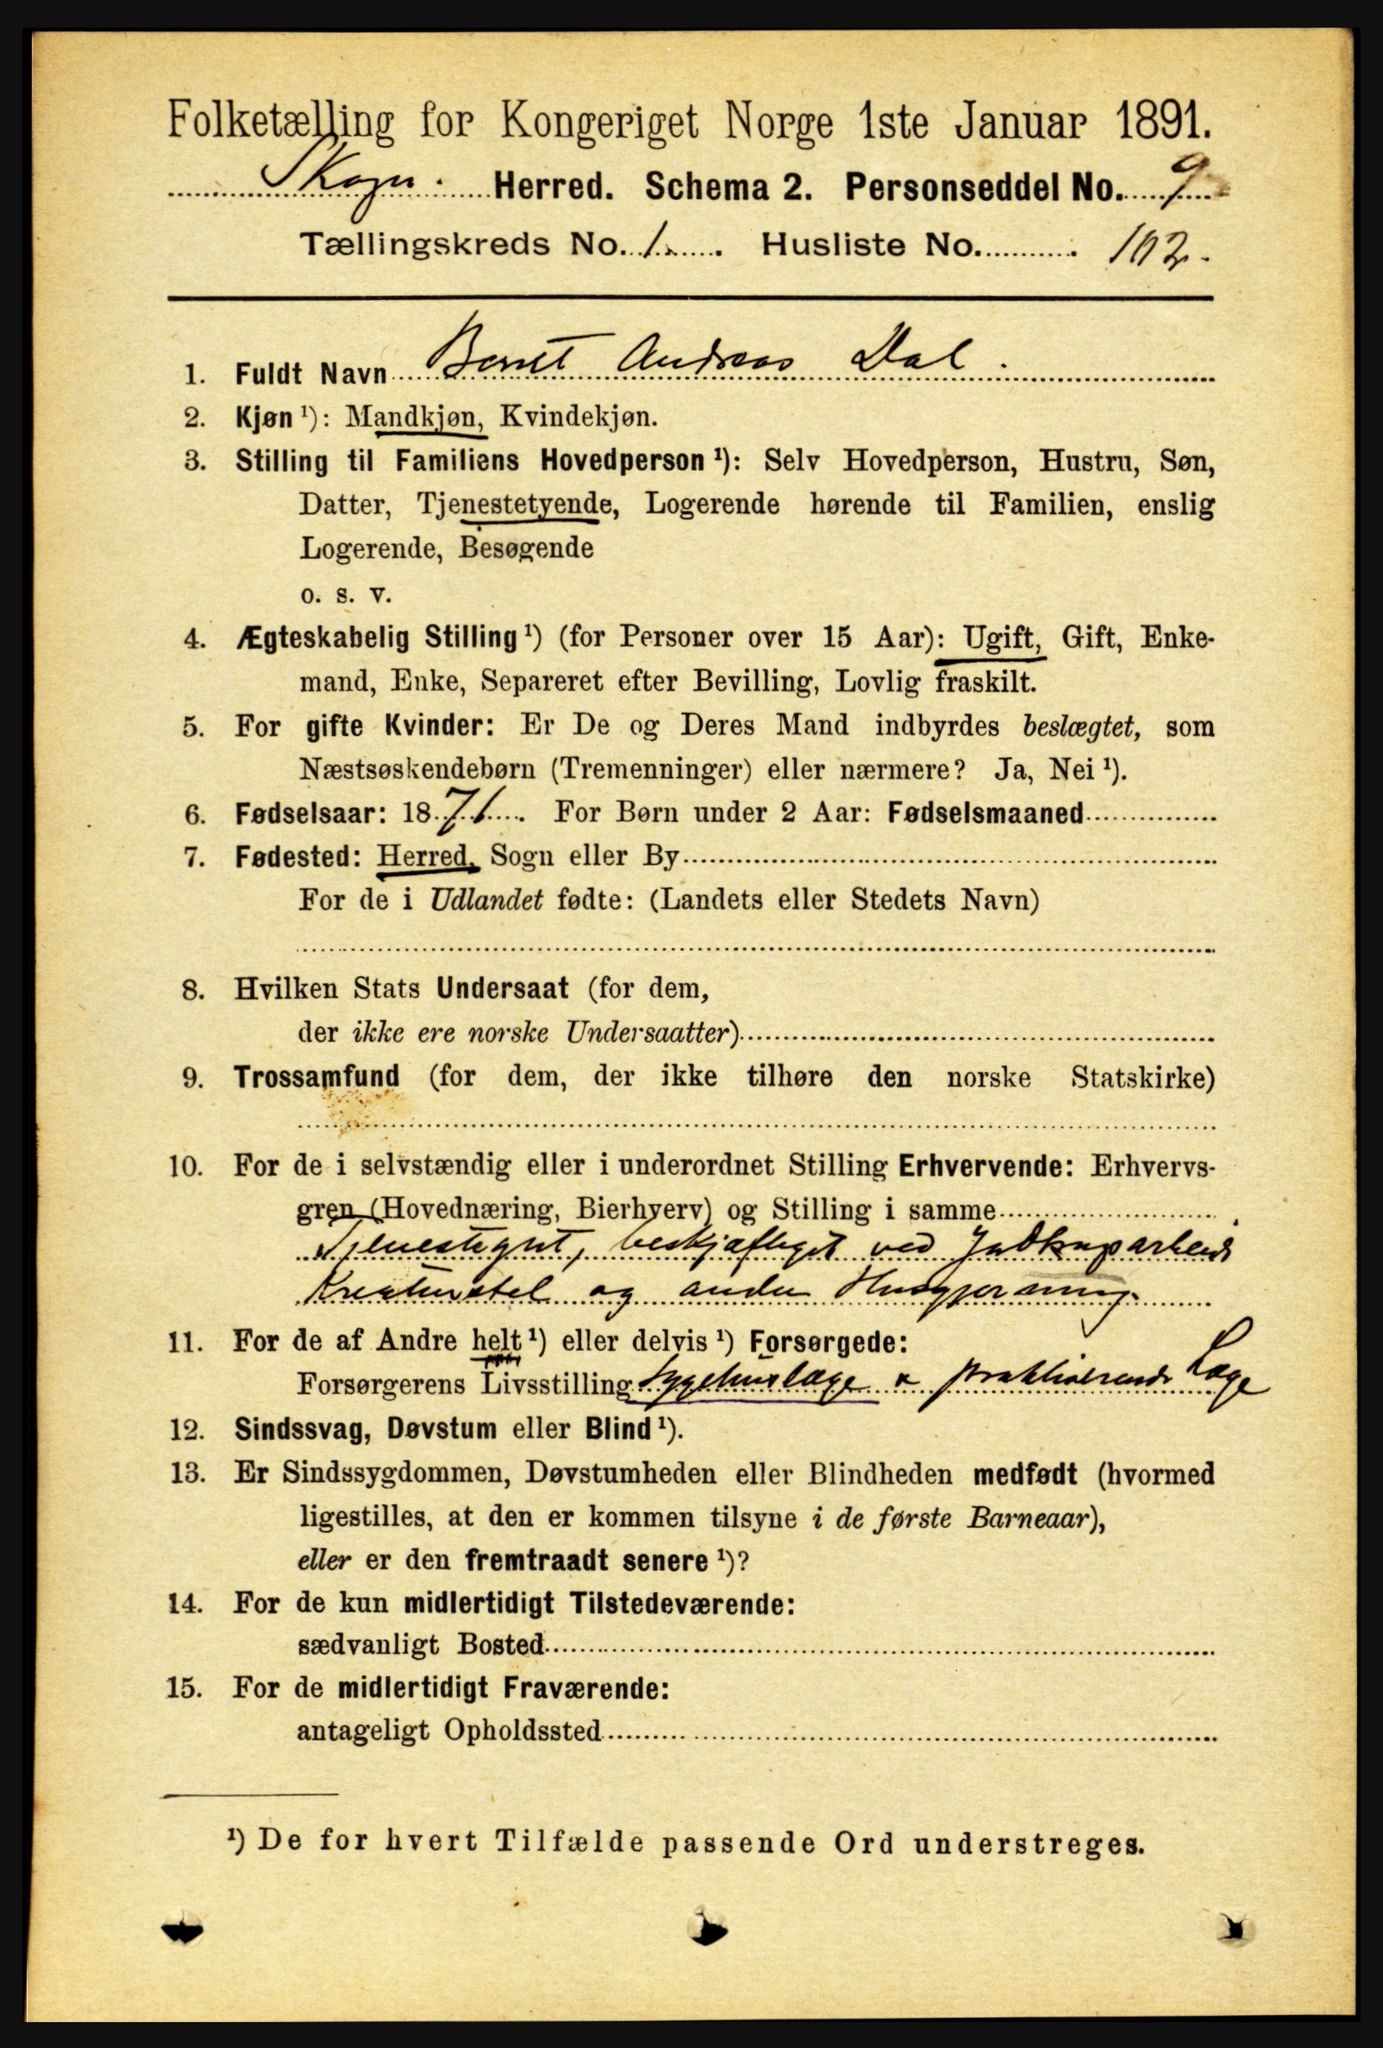 Folketælling for Kongeriget Norge 1ste Januar 1891.
Skogn. Herred. Schema 2. Personseddel No. 9
Tællingskreds No. 1. Husliste No. 102.
1. Fuldt Navn Bernt Andreas Dal.
2. Kjøn ¹): Mandkjøn, Kvindekjøn.
3. Stilling til Familiens Hovedperson ¹): Selv Hovedperson, Hustru, Søn,
Datter, Tjenestetyende, Logerende hørende til Familien, enslig
Logerende, Besøgende
o. s. v.
4. Ægteskabelig Stilling ¹) (for Personer over 15 Aar): Ugift, Gift, Enke-
mand, Enke, Separeret efter Bevilling, Lovlig fraskilt.
5. For gifte Kvinder: Er De og Deres Mand indbyrdes beslægtet, som
Næstsøskendebørn (Tremenninger) eller nærmere? Ja, Nei ¹).
6. Fødselsaar: 1871. For Børn under 2 Aar: Fødselsmaaned
7. Fødested: Herred, Sogn eller By
For de i Udlandet fødte: (Landets eller Stedets Navn)
8. Hvilken Stats Undersaat (for dem,
der ikke ere norske Undersaatter)
9. Trossamfund (for dem, der ikke tilhøre den norske Statskirke)
10. For de i selvstændig eller i underordnet Stilling Erhvervende: Erhvervs-
gren (Hovednæring, Bierhverv) og Stilling i samme
Tjenestegut, beskjæftiget ved
Kreaturstel og anden Husgjerning.
11. For de af Andre helt ¹) eller delvis ¹) Forsørgede:
Forsørgerens Livsstilling Sygehuslæge & praktiserende Læge
12. Sindssvag, Døvstum eller Blind ¹).
13. Er Sindssygdommen, Døvstumheden eller Blindheden medfødt (hvormed
ligestilles, at den er kommen tilsyne i de første Barneaar),
eller er den fremtraadt senere ¹)?
14. For de kun midlertidigt Tilstedeværende:
sædvanligt Bosted
15. For de midlertidigt Fraværende:
antageligt Opholdssted
¹) De for hvert Tilfælde passende Ord understreges.